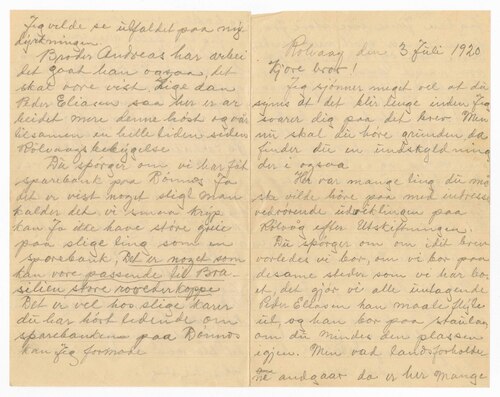 Jeg vilde se utfaldet paa ny
dyrkningen
Broder Andreas har arbei
det godt han ogsaa, det
skal være vist. Lige dan
Peder Eliasen saa her er ar
beidet mere denne höst og vår
tilsamen en hele tiden siden
Rolvaags bebyggelse
Du spörger om vi har fåt
sparebank paa Dönnes Ja
det er vist noget sligt man
kalder det. vi smaa kryp
kan jo ikke have store greie
paa slige ting som en
sparsbank, Det er noget som
kan være passende til Bra
silien store
Det er vel hos slige karer
du har hört tidende om
sparebanken paa Dönnes
kan jeg formode
Rolvaag den 3 Juli 1920
Kjære bror!
Jeg sjönner meget vel at du
syns at det blir lenge inden jeg
svarer dig paa det brev Men
nu skal du höre grunden da
finder du en undskyldning
der i ogsaa
Her er mange ting du må
ske vilde höre paa med intresse
vedrörende utviklingen paa
Rolvåg efter Utskiftningen.
Du spörger om om i dit brev
vorledes vi bor, om vi bor paa
desame steder som vi här bo
et, det gjör vi alle untagende
Peder Eliasen han maate flytte
ut, og han bor paa staulan
om du mindes den plassen
igjen. Men vad landsforholde
ne andgaar da er her mange